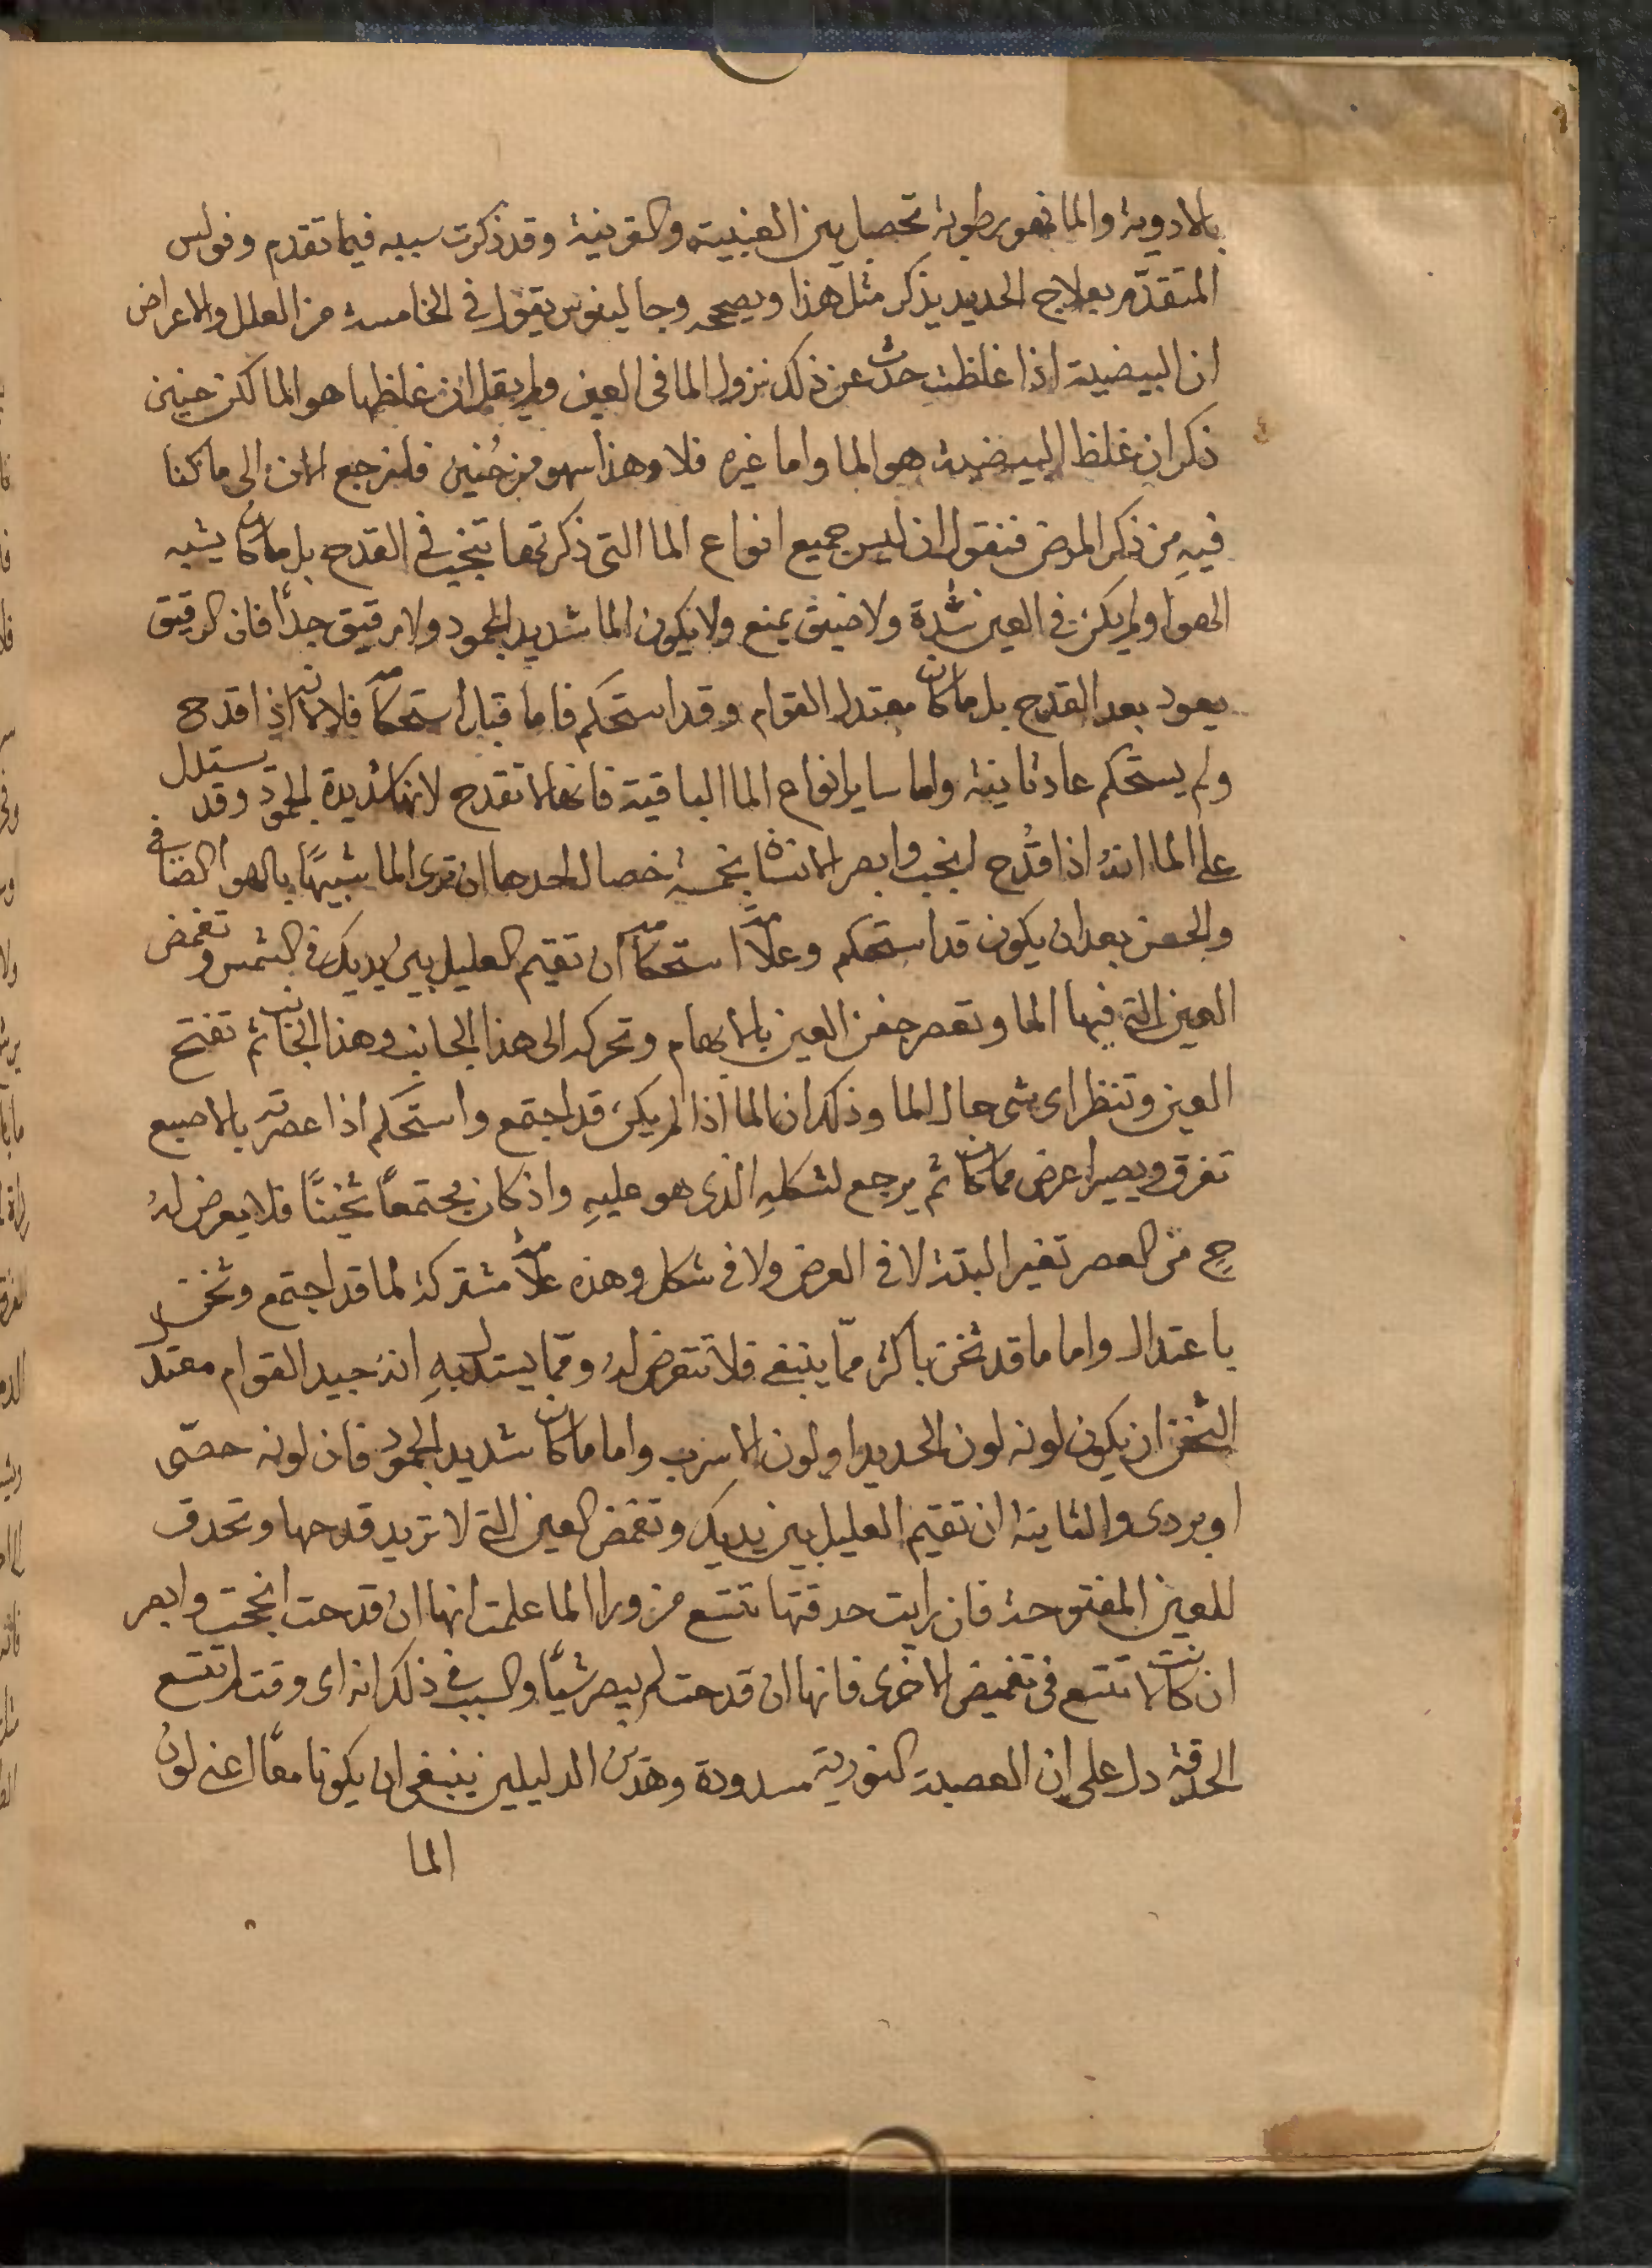 بالادوية والما فهو رطوبة تحصل بين العنبية والقرنية وقد ذكرت سببه فيما تقدم وفولس
المتقدّم بعلاج الحديد يذكر مثل هذا ويصححه وجالينوس يقول في الخامسة من العلل والاعراض
ان البيضية اذا غلظت حدث عن ذلك نزول الما فى العين ولم يقل ان غلظها هو الما لكن حنين
ذكر ان غلظ البيضية هو الما واما غيره فلا وهذا سهو من حُنين فلنرجع الان الى ما كنا
فيهِ من ذكر المرض فنقول ان ليس جميع انواع الما التى ذكرتها تنجب في القدح بل ما كان يشبه
الهوا ولم يكن في العين شدة ولا ضيق يمنع ولا يكون الما شديد الجمود ولا رقيق جدًا فان الرقيق
يعود بعد القدح بل ما كان معتدل القوام وقد استحكم فاما قبل استحكامه فلا لانه اذا قدح
ولم يستحكم عاد ثانية واما ساير انواع الما الباقية فانها لا تقدح لانها شديدة الجمود وقد يستدل
على الما انهُ اذا قُدح انجب وابصر الانسان بخمسة خصال احدها ان ترى الما شبيهًا بالهوا الصافى
والحسن بعد ان يكون قد استحكم وعلامة استحكامه ان تقيم العليل بين يديك في الشمس وتغمض
العين التي فيها الما وتعصر جفن العين بالابهام وتحركه الى هذا الجانب وهذا الجانب ثم تفتح
العين وتنظر اى شى حال الما وذلك ان الما اذا لم يكن قد اجتمع واستحكم اذا عصرته بالاصبع
تفرق ويصير اعرض مما كان ثم يرجع لشكلهِ الذى هو عليهِ واذ كان مجتمعاً ثخينًا فلا يعرض لهُ
حِ من العصر تغير البتة لا في العرض ولا فى شكل وهذه علامة مشتركة لما قد اجتمع وثخن
باعتدال واما ما قد ثخن باكثر ممّا ينبغي فلا تتعرض له وممّا يستدل بهِ انهُ جيد القوام معتدل
الثخن ان يكون لونه لون الحديد او لون الاسرب واما ما كان شديد الجمود فان لونه جصّى
او بردى والثانية ان تقيم العليل بين يديك وتغمض العين التي لا تريد قدحها وتحدق
للعين المفتوحة فان رايت حدقتها تتسع من ورا الما علمت انها ان قدحت انجحت وابصر
ان كانت لا تتسع فى تغميض الاخرى فانها ان قدحت لم يبصر شيًّا والسبب في ذلك انه اى وقت لم تتسع
الحدقة دل على ان العصبة النورية مسدودة وهذين الدليلين ينبغى ان يكونا معًا اعنى لون
الما